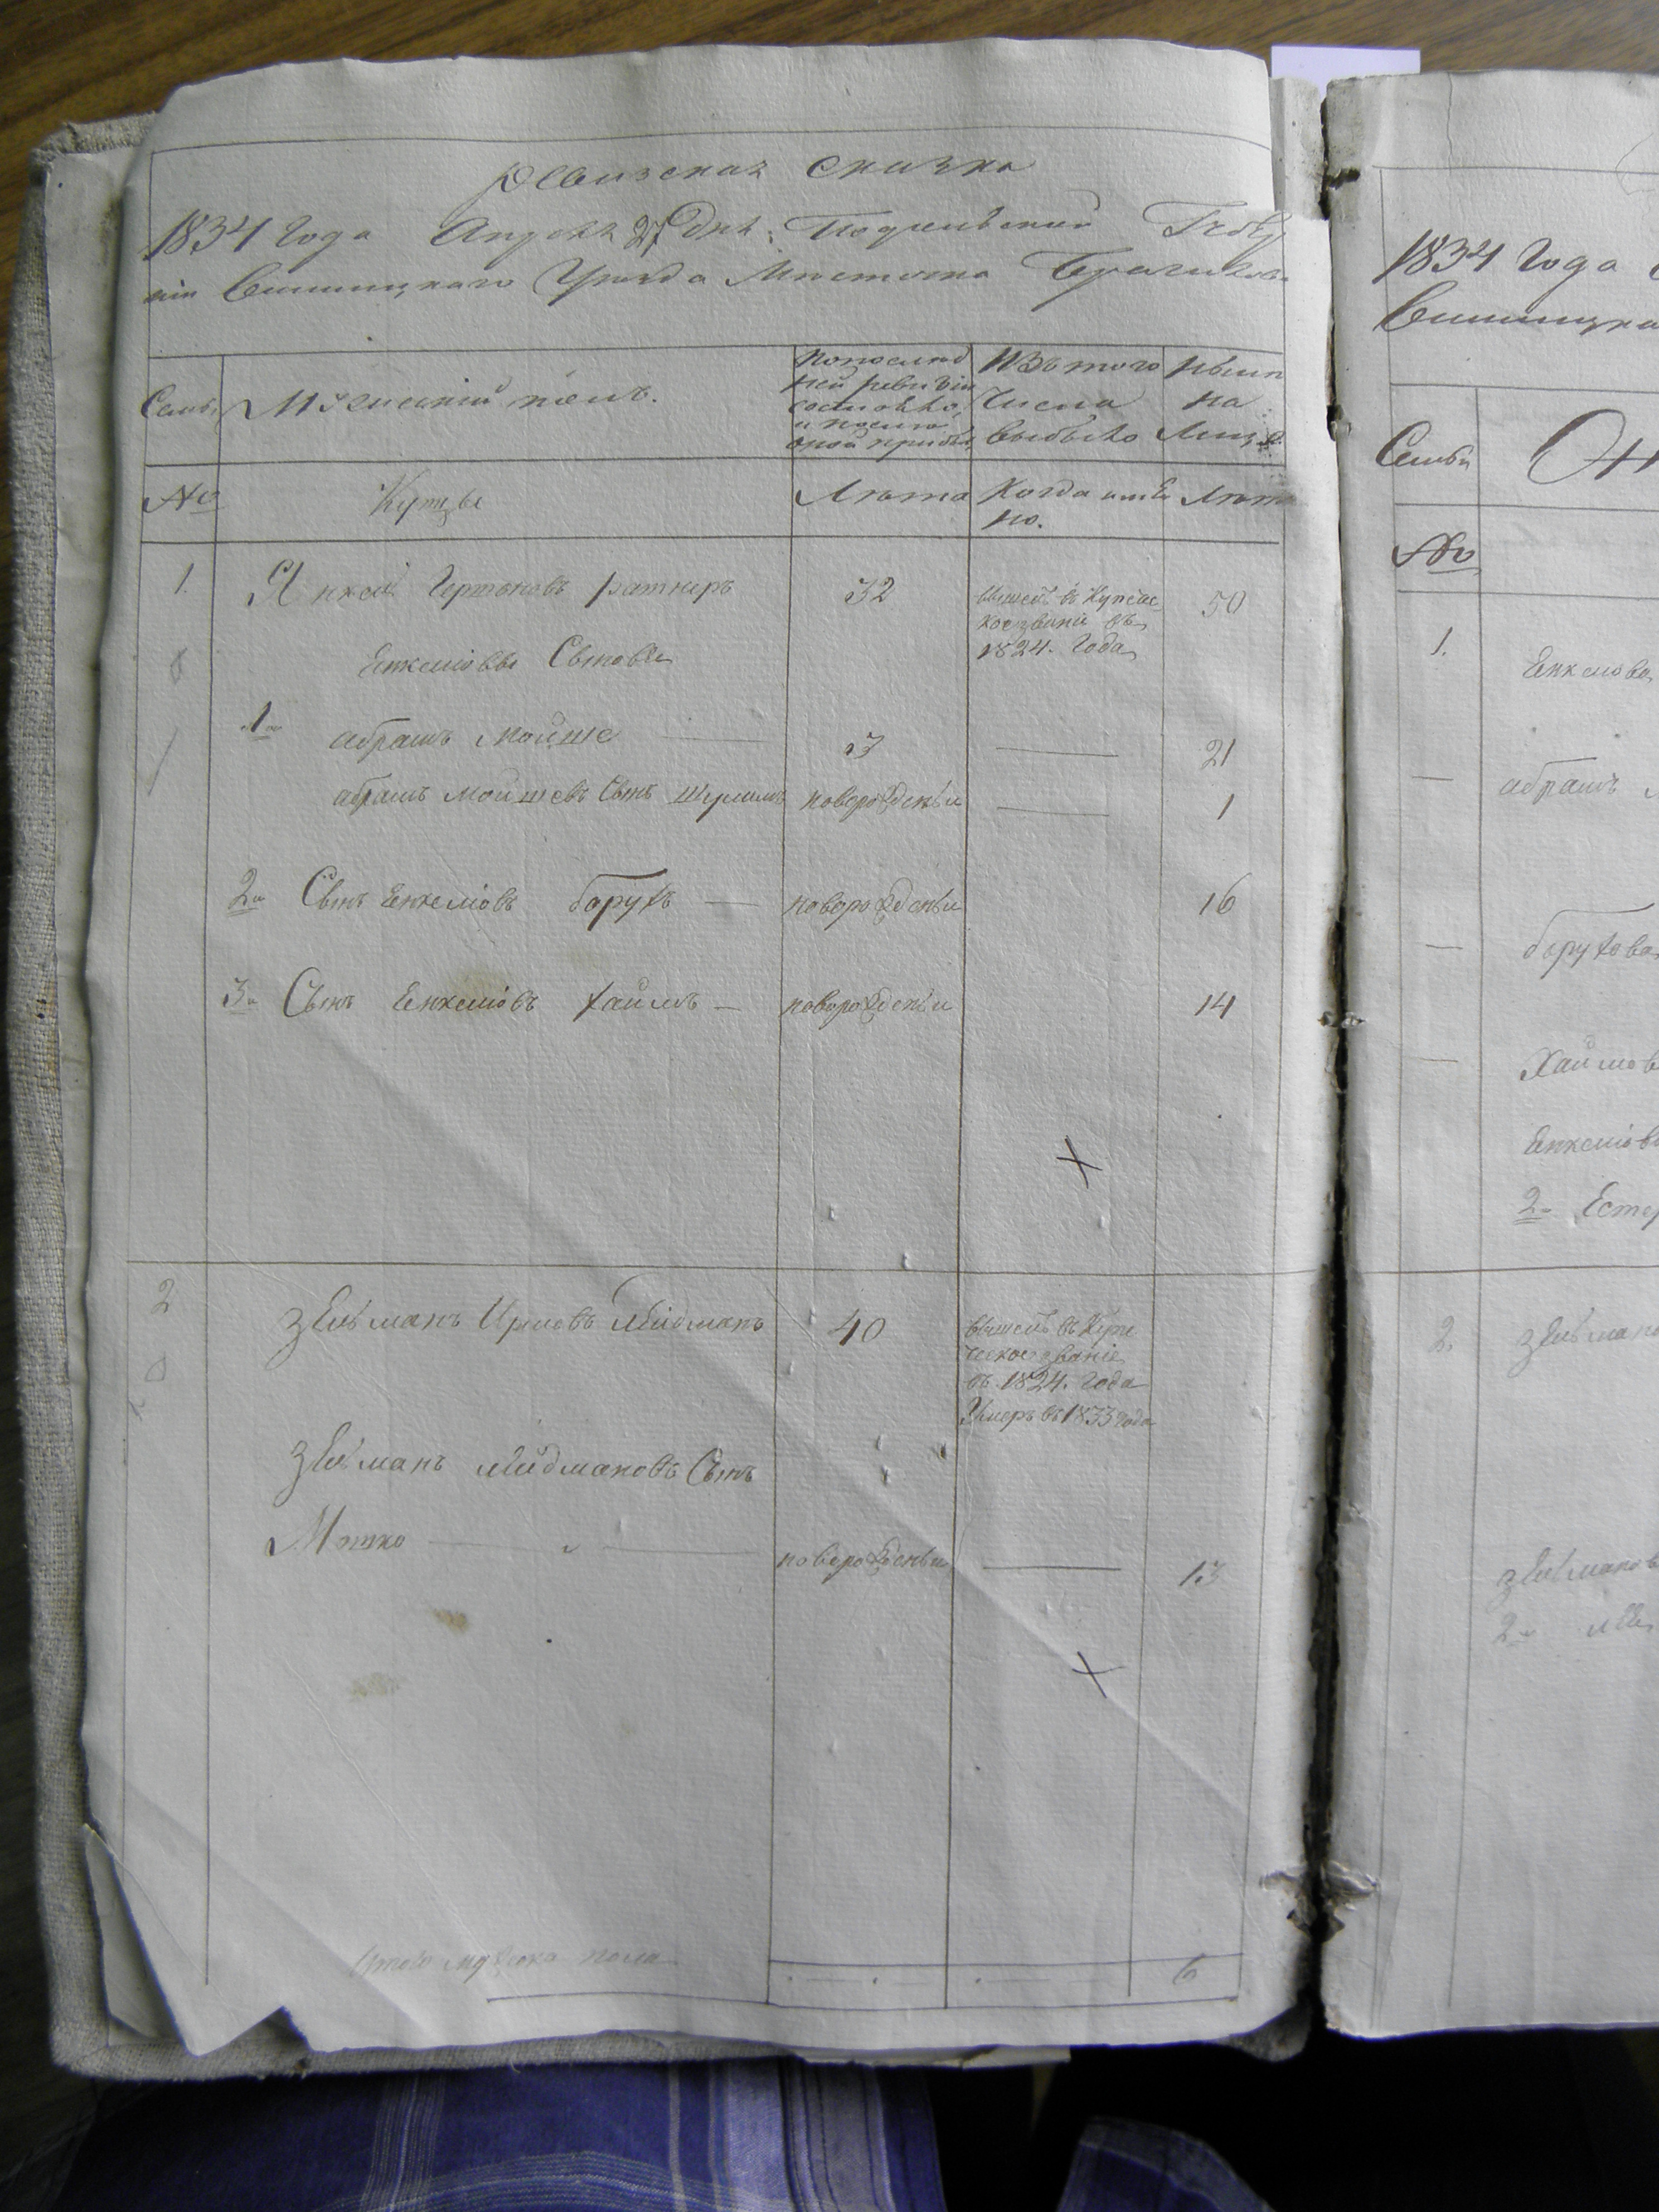 Ревизская Сказка
1834 Года Апреля 27 Дня: Подольский Губер
нии Винницкаго Уезда Местечка Браилова
Семьи
Мужеский полъ.
По послед
ней ревизіи
состояло,
и после
оной прибы
Изъ того
Числа
выбыло
Ныне
на
Лицо
№
Купцы
Лета
Когда имен
но.
Лета
1.
Янкель Гершковъ Ратнеръ
32
вышелъ в Купечес
кое звание въ
1824. Года
50
Енкеліовы Сыновья
1й
абрамъ мойше
3
21
абрамъ мойшевъ Сынъ Шулимъ
новорожденъи
1
2й
Сынъ Енкеліовъ борухъ
новорожденъи
16
3й
Сынъ Енкеліовъ хаимъ
новорожденъи
14
2
Зельманъ
40
вышелъ въ Купе
ческое званіе
въ 1824. Года
Умеръ въ 1833 Года
Зельманъ Сынъ
Мошко
новорожденъи
13
Итого мужеска пола
6
1834 Года
Винницка
Семьи
№
1.
Енкелова
абрамъ
борухова
Хаимов
Енкеліов
2й Естер
2.
Зельмано
Зельманов
2й